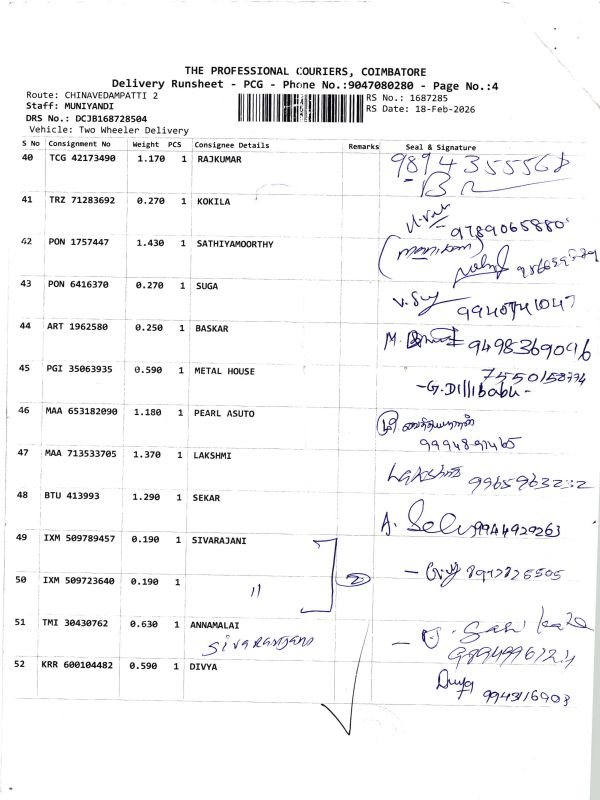 THE PROFESSIONAL COURIERS, COIMBATORE
Delivery Runsheet - PCG - Phone No.:9047080280 - Page No.:4
Route: CHINAVEDAMPATTI 2
Staff: MUNIYANDI
DRS No.: DCJB168728504
Vehicle: Two Wheeler Delivery
RS No.: 1687285
RS Date: 18-Feb-2026
S No Consignment No Weight PCS Consignee Details Remarks Seal & Signature
40 TCG 42173490 1.170 1 RAJKUMAR 9894355568
41 TRZ 71283692 0.270 1 KOKILA 9789065880
42 PON 1757447 1.430 1 SATHIYAMOORTHY
43 PON 6416370 0.270 1 SUGA
44 ART 1962580 0.250 1 BASKAR 9498369096
45 PGI 35063935 0.590 1 METAL HOUSE 7550158774
-G.Dillibabu-
46 MAA 653182090 1.180 1 PEARL ASUTO
9994891465
47 MAA 713533705 1.370 1 LAKSHMI Lakshmi 9965963232
48 BTU 413993 1.290 1 SEKAR
A. Selv 9944929263
49 IXM 509789457 0.190 1 SIVARAJANI
50 IXM 509723640 0.190 1 〃 2
51 TMI 30430762 0.630 1 ANNAMALAI
52 KRR 600104482 0.590 1 DIVYA Divya 9943116903